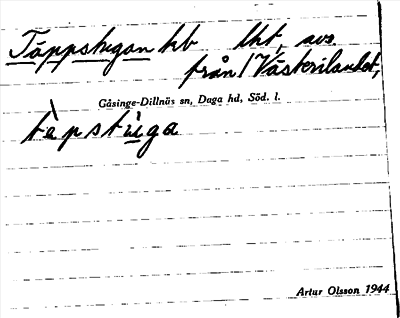 Täppstugan hb lht, avs.
från Västerilandet,
Gåsinge-Dillnäs sn, Daga hd, Söd. l.
tɛ̀pstùga
Artur Olsson 1944